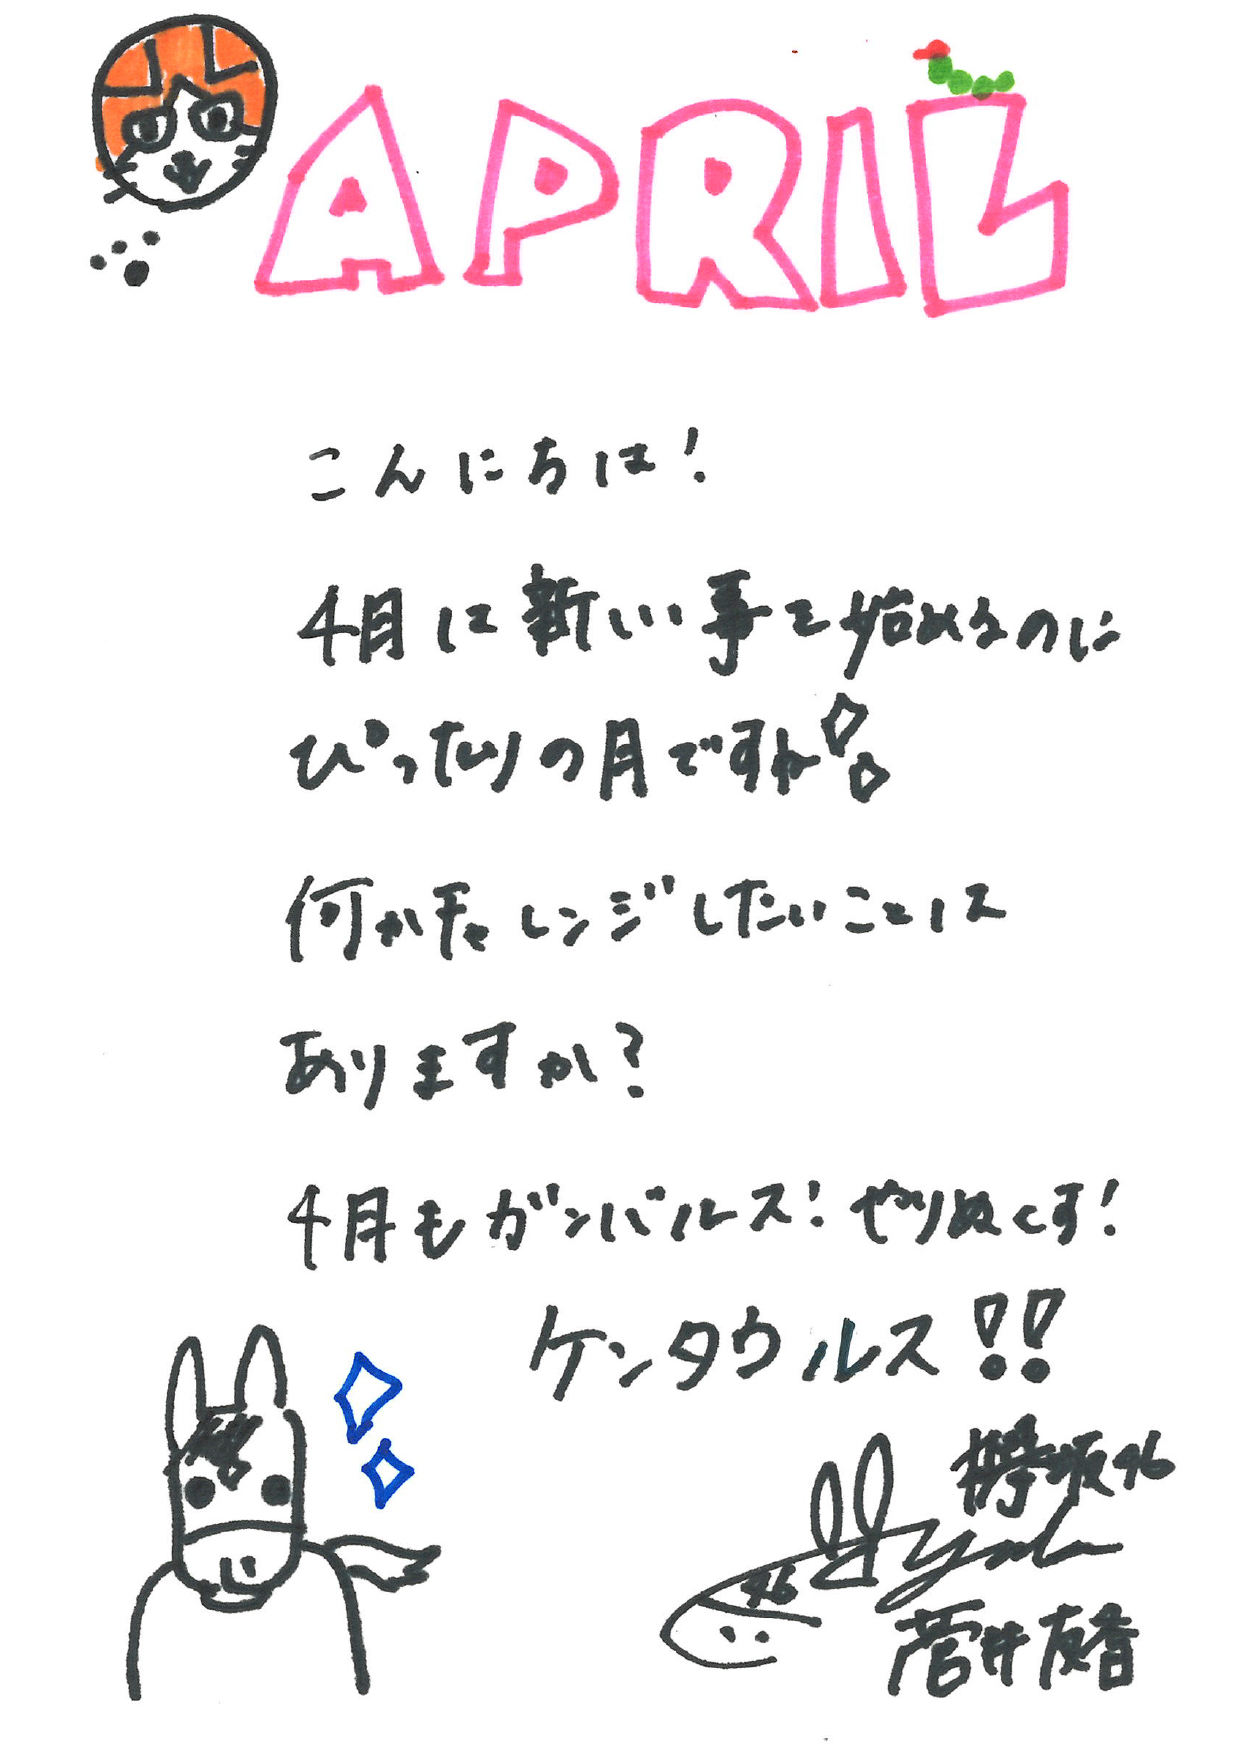 APRIL
こんにちは!
4月は新しい事を始めるのに
ぴったりの月ですね!
何かチャレンジしたいことは
ありますか?
4月もガンバルルス!やりぬくす!
ケンタウルス!!
欅坂46
46
菅井友香